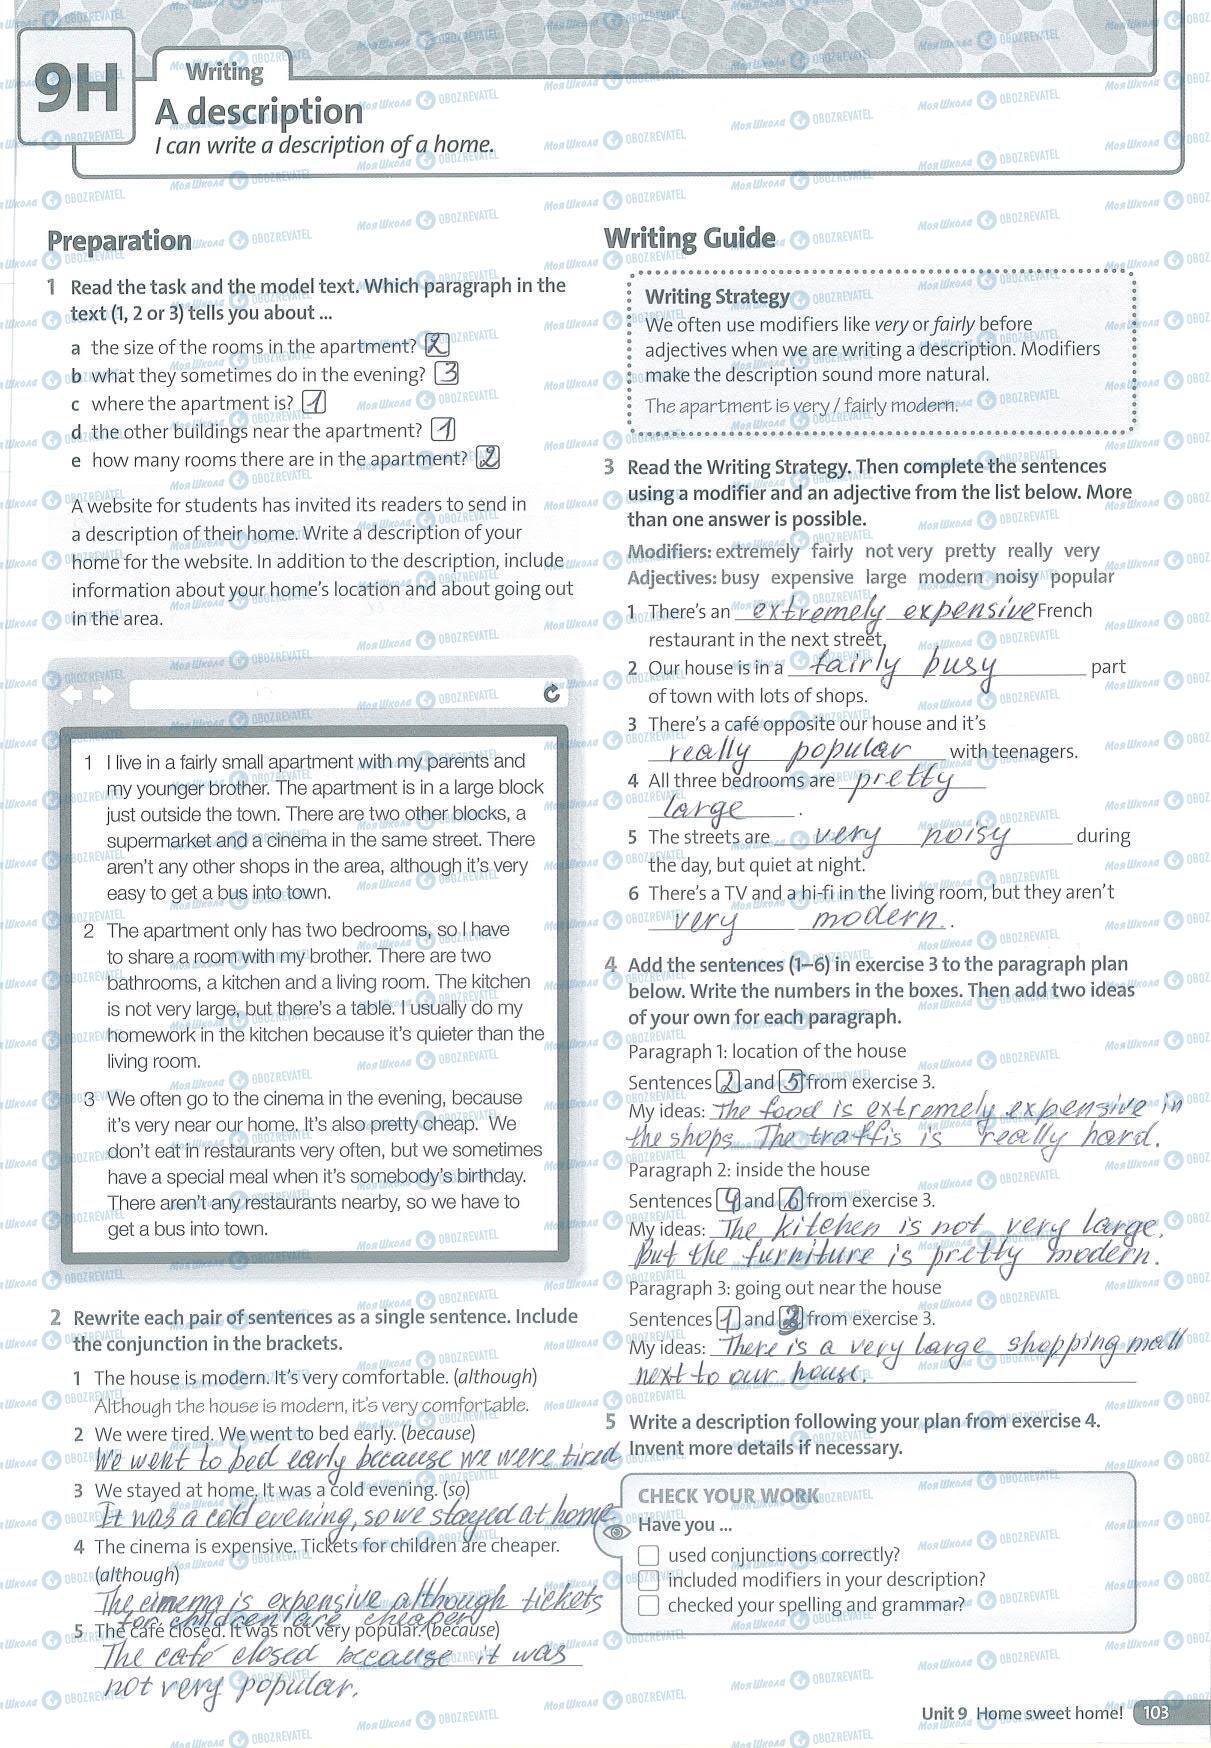 9H
Writing
A description
I can write a description of a home.
Preparation
1 Read the task and the model text. Which paragraph in the
text (1, 2 or 3) tells you about ...
a the size of the rooms in the apartment? 2
b what they sometimes do in the evening? 3
c where the apartment is? 1
d the other buildings near the apartment? 1
e how many rooms there are in the apartment? 2
A website for students has invited its readers to send in
a description of their home. Write a description of your
home for the website. In addition to the description, include
information about your home's location and about going out
in the area.
1 I live in a fairly small apartment with my parents and
my younger brother. The apartment is in a large block
just outside the town. There are two other blocks, a
supermarket and a cinema in the same street. There
aren't any other shops in the area, although it's very
easy to get a bus into town.
2 The apartment only has two bedrooms, so I have
to share a room with my brother. There are two
bathrooms, a kitchen and a living room. The kitchen
is not very large, but there's a table. I usually do my
homework in the kitchen because it's quieter than the
living room.
3 We often go to the cinema in the evening, because
it's very near our home. It's also pretty cheap. We
don't eat in restaurants very often, but we sometimes
have a special meal when it's somebody's birthday.
There aren't any restaurants nearby, so we have to
get a bus into town.
2 Rewrite each pair of sentences as a single sentence. Include
the conjunction in the brackets.
1 The house is modern. It's very comfortable. (although)
Although the house is modern, it's very comfortable.
2 We were tired. We went to bed early. (because)
We went to bed early because we were tired
3 We stayed at home. It was a cold evening. (so)
It was a cold evening, so we stayed at home
4 The cinema is expensive. Tickets for children are cheaper.
(although)
The cinema is expensive although tickets
for children are cheaper
5 The café closed. It was not very popular. (because)
The café closed because it was
not very popular.
Writing Guide
Writing Strategy
We often use modifiers like very or fairly before
adjectives when we are writing a description. Modifiers
make the description sound more natural.
The apartment is very / fairly modern.
3 Read the Writing Strategy. Then complete the sentences
using a modifier and an adjective from the list below. More
than one answer is possible.
Modifiers: extremely fairly not very pretty really very
Adjectives: busy expensive large modern noisy popular
1 There's an extremely expensive French
restaurant in the next street.
2 Our house is in a fairly busy part
of town with lots of shops.
3 There's a café opposite our house and it's
really popular with teenagers.
4 All three bedrooms are pretty
large .
5 The streets are very noisy during
the day, but quiet at night.
6 There's a TV and a hi-fi in the living room, but they aren't
very modern. .
4 Add the sentences (1–6) in exercise 3 to the paragraph plan
below. Write the numbers in the boxes. Then add two ideas
of your own for each paragraph.
Paragraph 1: location of the house
Sentences 2 and 5 from exercise 3.
My ideas: The food is extremely expensive in
the shops. The traffis is really hard.
Paragraph 2: inside the house
Sentences 4 and 6 from exercise 3.
My ideas: The kitchen is not very large,
but the furniture is pretty modern.
Paragraph 3: going out near the house
Sentences 1 and 3 from exercise 3.
My ideas: There is a very large shopping mall
next to our house.
5 Write a description following your plan from exercise 4.
Invent more details if necessary.
CHECK YOUR WORK
Have you ...
used conjunctions correctly?
included modifiers in your description?
checked your spelling and grammar?
Unit 9 Home sweet home! 103
МояШкола OBOZREVATEL